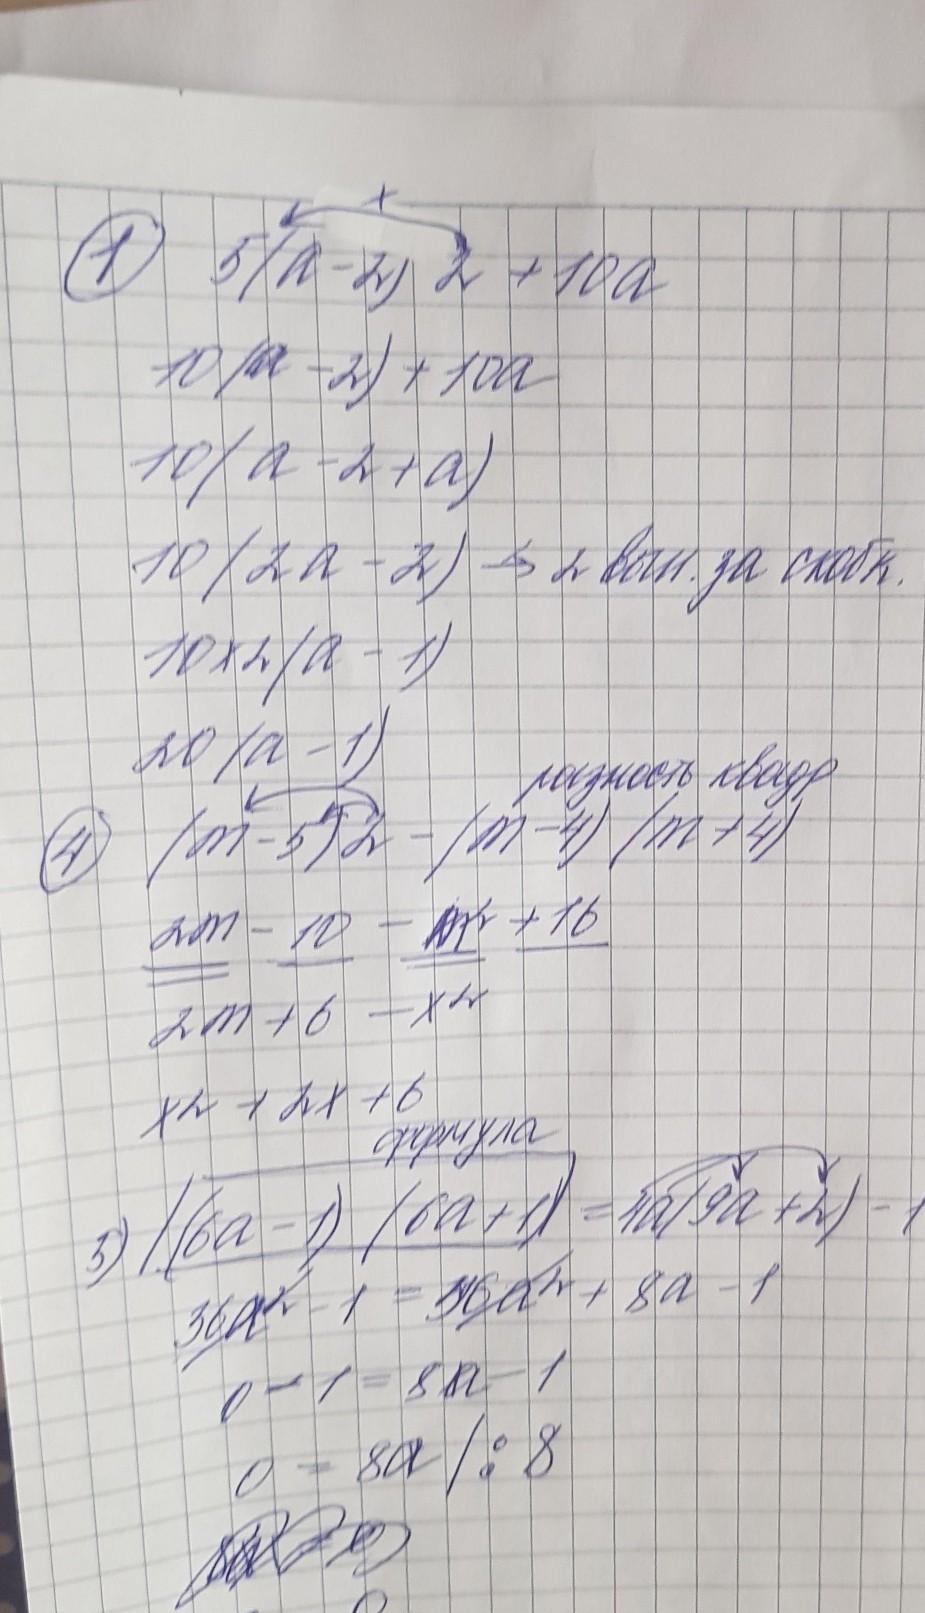 ① 5(a-2) 2 + 10a
10(a-2) + 10a
10(a-2+a)
10(2a-2) → 2 вын. за скобк.
10×2(a-1)
20(a-1)
разность квадр
④ (m-5)2 - (m-4) (m+4)
2m - 10 - m² + 16
2m + 6 - x²
x² + 2x + 6
формула
5) ((6a-1) (6a+1)) = 4a(9a+2) - 1
36a² - 1 = 36a² + 8a - 1
0 - 1 = 8a - 1
0 = 8a /: 8